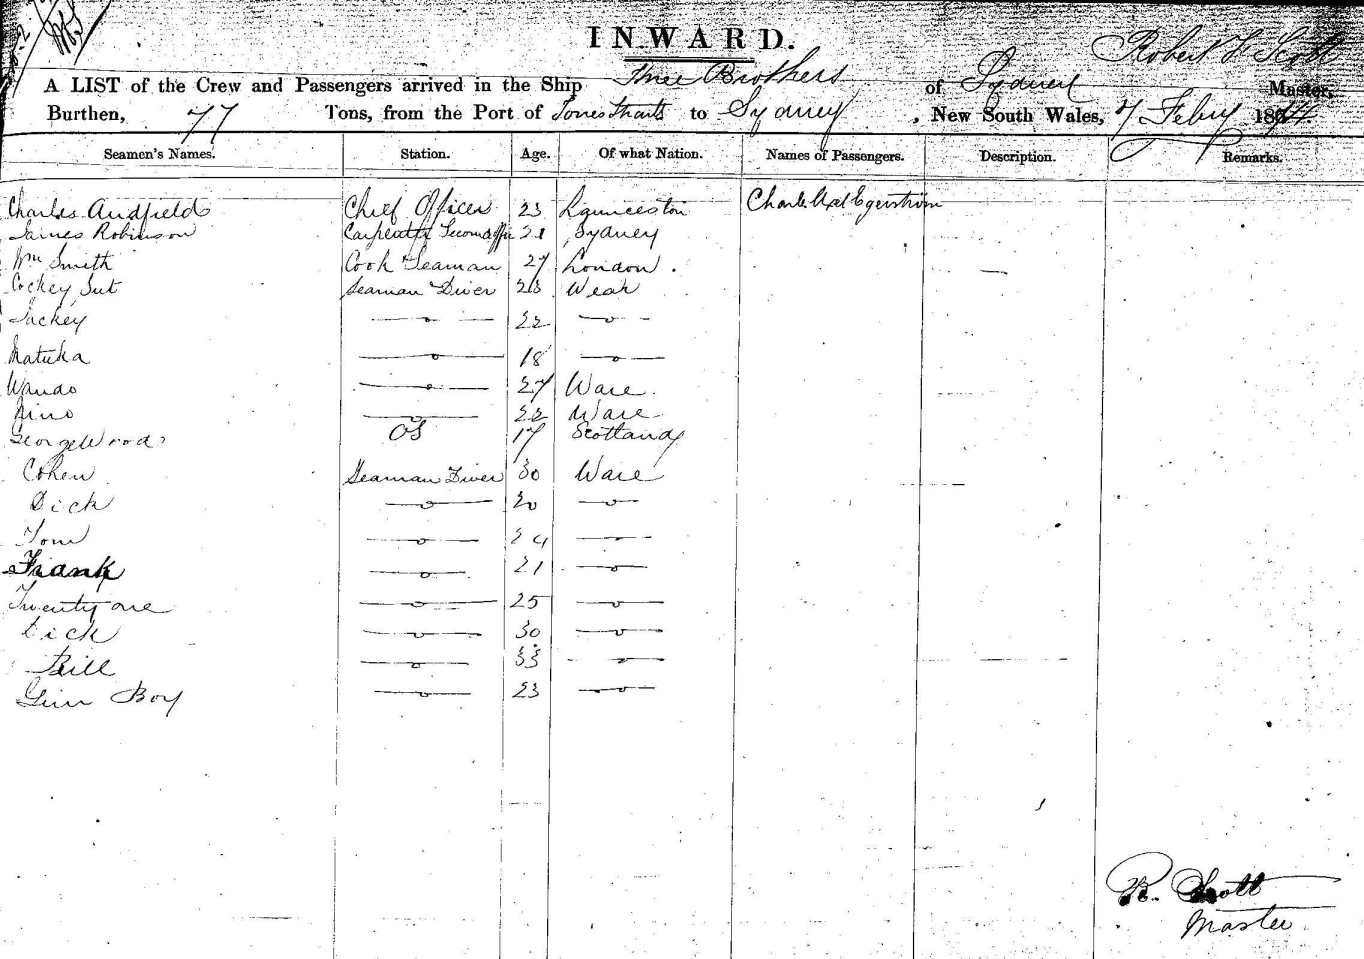 INWARD.
Robert Scott
A LIST of the Crew and Passengers arrived in the Ship Three Brothers of Sydney Master,
Burthen, 77 Tons, from the Port of Torres Straits to Sydney, New South Wales, 7 Febry 187
Seamen's Names. Station. Age. Of what Nation. Names of Passengers. Description. Remarks.
Charles Audfield Chief Officer 23 Launceston Charles Egerstrom
James Robinson Carpenter Second Offic 21 Sydney
Wm Smith Cook Seaman 27 London.
Cockey Seaman Diver 23 Wear
Jackey —o— 22 —o—
Matuka —o— 18 —o—
Wando —o— 27 Ware.
Nino —o— 22 Ware
George Wood OS 17 Scotland
Cohen Seaman Diver 30 Ware
Dick —o— 20 —o—
Tom —o— 24 —o—
Frank —o— 21 —o—
Twenty one —o— 25 —o—
Dick —o— 30 —o—
Bill —o— 33 —o—
Boy —o— 23 —o—
R. Scott
Master